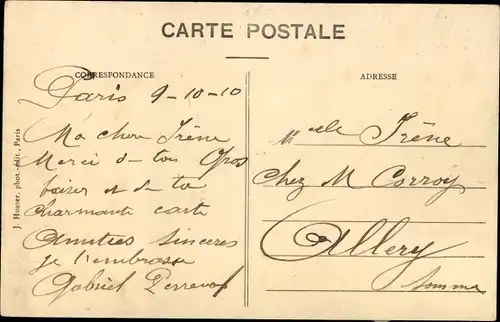 CARTE POSTALE
CORRESPONDANCE
Paris 9-10-10
Ma chère Irène
Merci de ton gros
baiser et de ta
charmante carte
Amitiés sincères
je t'embrasse
Gabriel
ADRESSE
Melle Irène
chez M Corroy
Allery
Somme
J. Hauser, phot.-édit., Paris